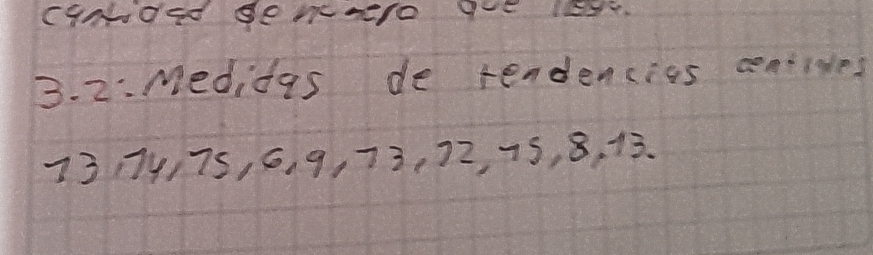 cantidad de numero que
3.2: Medidas de tendencias centrales
13, 14, 15, 6, 9, 13, 12, 15, 8, 13.